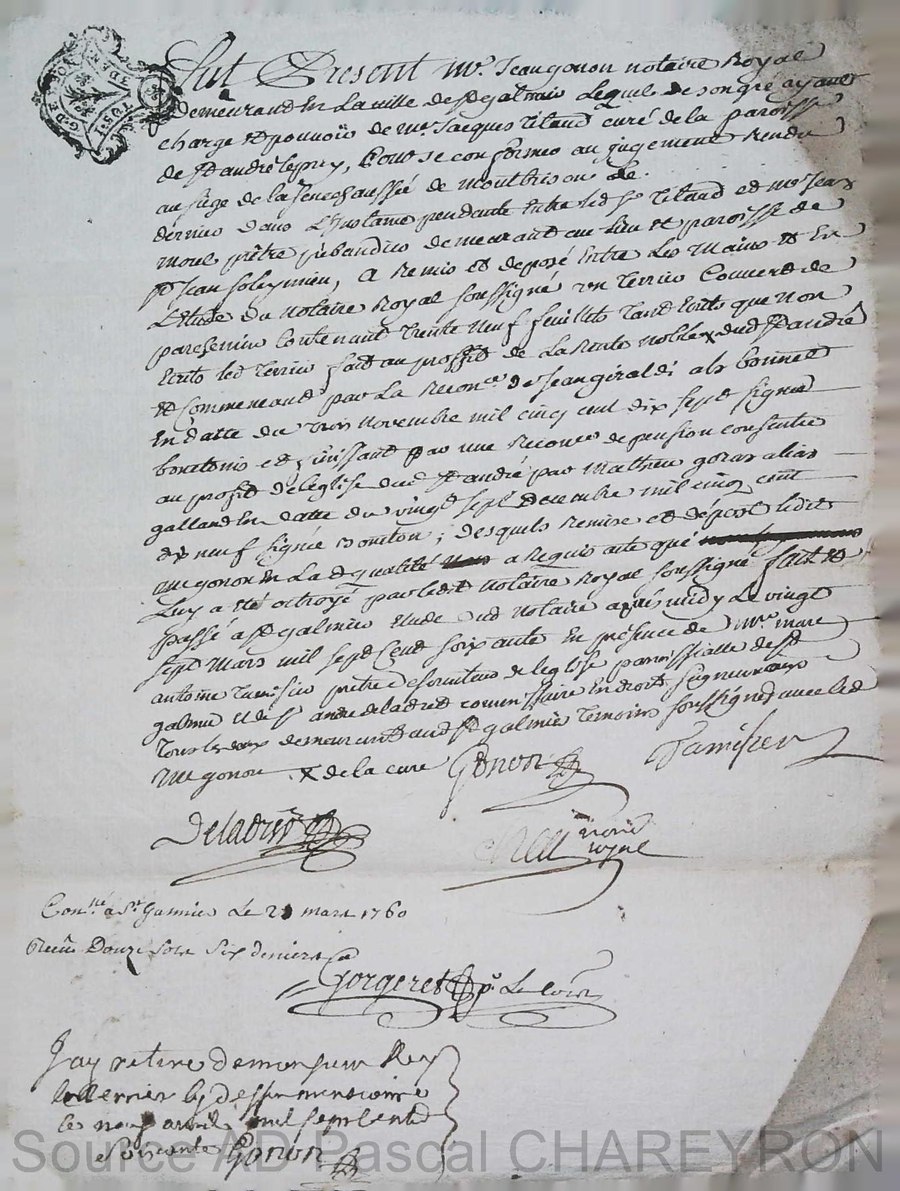 Fut Present Mr. Jean gonon notaire Royal
demeurant En La ville de st galmier Lequel de son gré ayant
charge et pouvoir de me Jacques curé de la paroisse
de st andré le puy, pour se conformer au jugement Rendu
au siege de la senechaussée de montbrison Le
dernier dans L'instance pendante Entre led sr et me Jean
prêtre prebandier demeurant au Lieu et paroisse de
st Jean soleymieu, a Remis et deposé Entre Les mains et En
L'Etude du Notaire Royal soussigné un Terrier Couvert de
parchemin Contenant Trente Neuf feuillets Tant Ecrits que Non
Ecrits led Terrier fait au proffit de La Rente Noble x dud st andré
et Commencant par La Reconce de Jean giraldi als bonnet
En datte du trois Novembre mil cinq cent dix sept signé
et finissant par une Reconce de pension consentie
au profit de l'eglise dud st andré par Mathieu goras alias
galland En datte du vingt sept decembre mil cinq cent
dix neuf signé ; desquels Remise et dépost ledit
me gonon En La de qualité a Requis acte que
Luy a eté octroyé par ledit Notaire Royal soussigné fait et
passé a st galmier Etude dud Notaire aprés midy Le vingt
sept Mars mil sept Cent soixante En présence de Mre marc
antoine Tamisier prêtre desserviteur de l'eglise parroissialle de st
galmier et de sr andre deladret commissaire En droits seigneuriaux
Tous les deux demeurants aud st galmier Temoins soussignés avec led
me gonon x de la cure Gonon Tamisier
Rey
Con.lé a St Galmier Le mars 1760
Reçu Douze sols six deniers
Gorgeret pr. Le
Jay retire de monsieur Rey
le terrier sy dessus mensionné
ce neuf avril mil sept cent
soixante Gonon
Source AD Pascal CHAREYRON